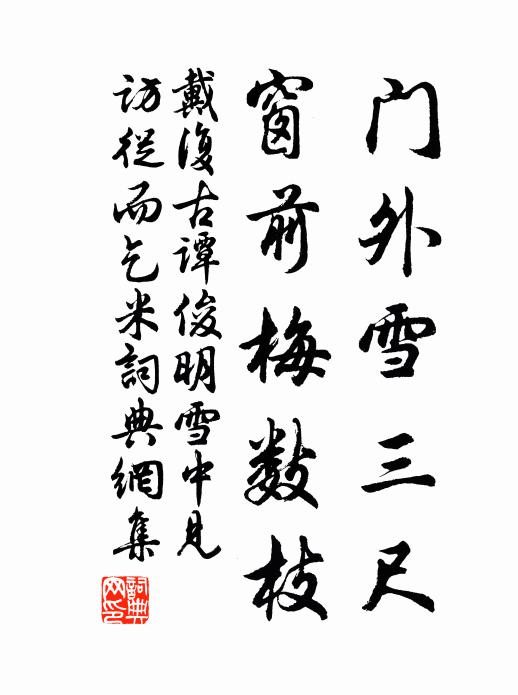 门外雪三尺
窗前梅数枝
戴復古譚俊明雪中見
訪從而乞米詞典網集
詞典网印